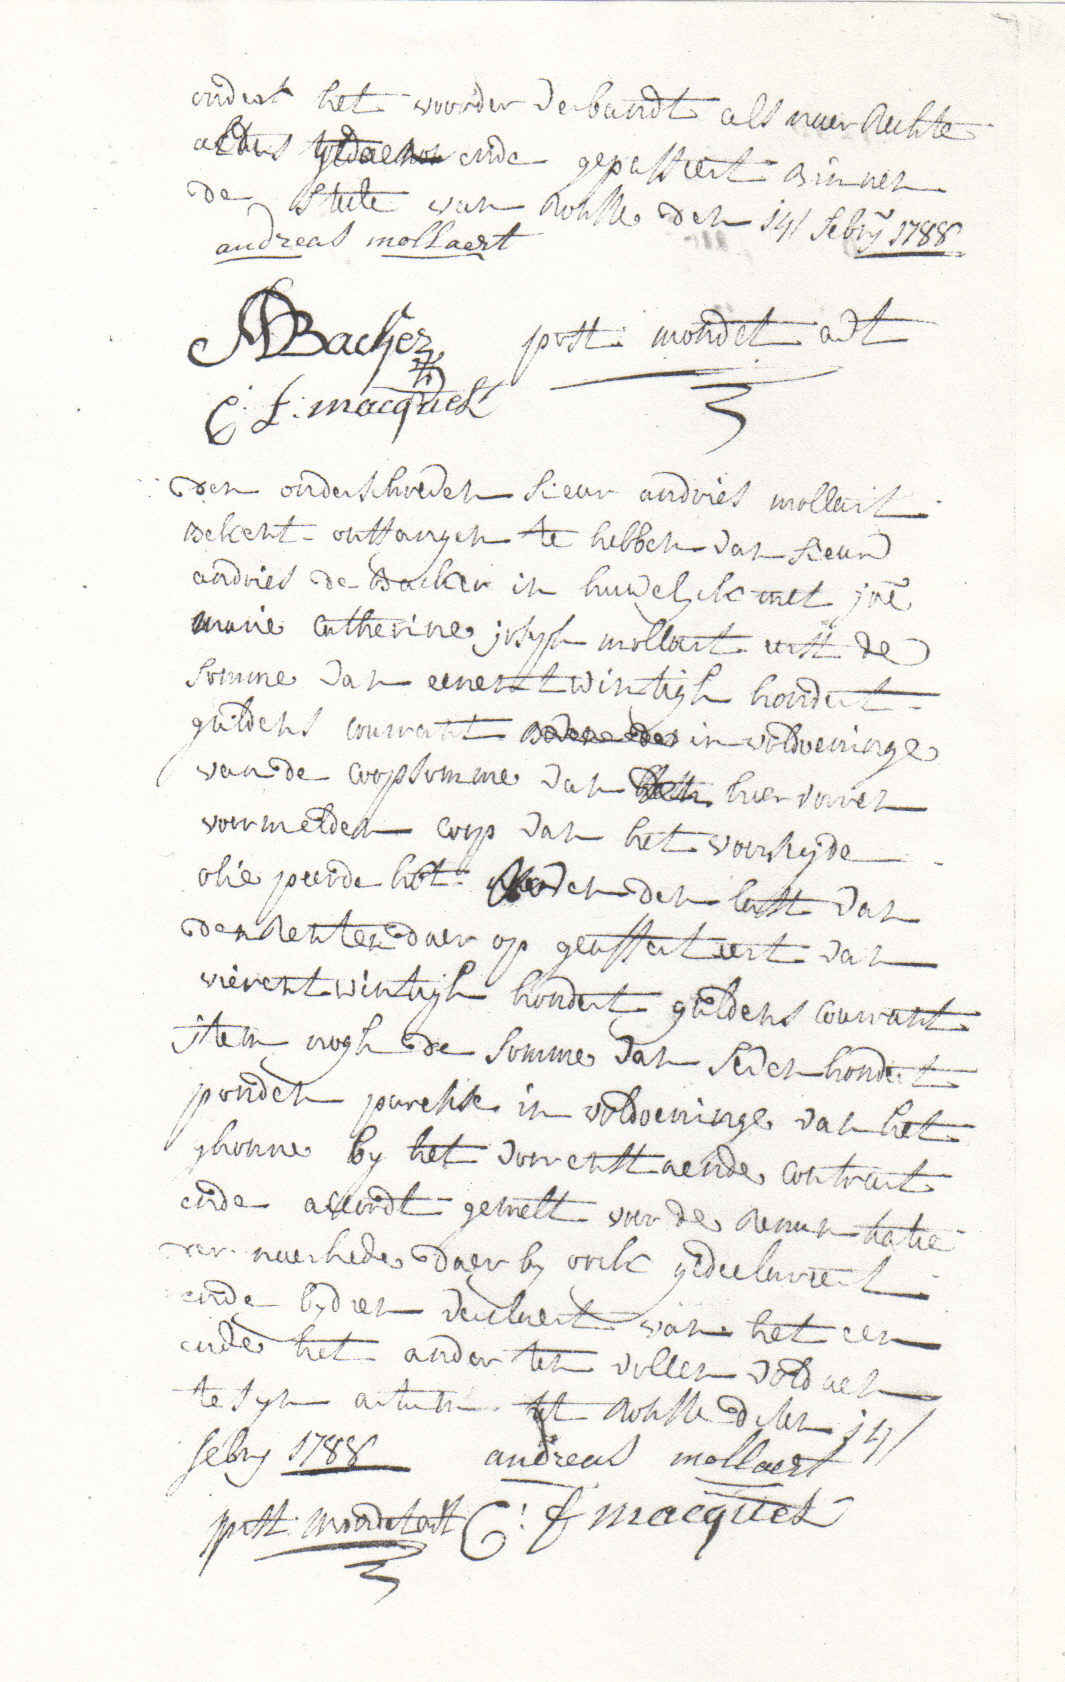 onder het voorder verbandt als naer Rechte
aldus gedaen ende gepasseert Binnen
de stede van Ronsse den 14 febry 1788
andreas mollaert
ADBacker post mondet adt
C: f: macquet
den onderschreven sieur andries mollaert
Bekent ontfangen te hebben van sieur
andries de Backer in huwelick met joe
marie catherine joseph mollaert erst de
somme van eenentwintigh hondert
guldens courant in voldoeninge
vande coopsomme van hier vooren
voormelden coop van het voorseyde
olie peerde kot den last van
den Renten daer op geaffecteert van
vierentwintigh hondert guldens courant
item nogh de somme van seven hondert
ponden parchise in voldoeninge van het
ghonne by het voorenstaende contract
ende accordt gemelt voor de Renuntiatie
der neerhede daer by oock gedeclareert
ende bydien verclaert van het een
ende het ander ten vollen voldaen
te syn actum tot Ronsse desen 14
febry 1788 andreas mollaert
post mondet adt C: f macquet